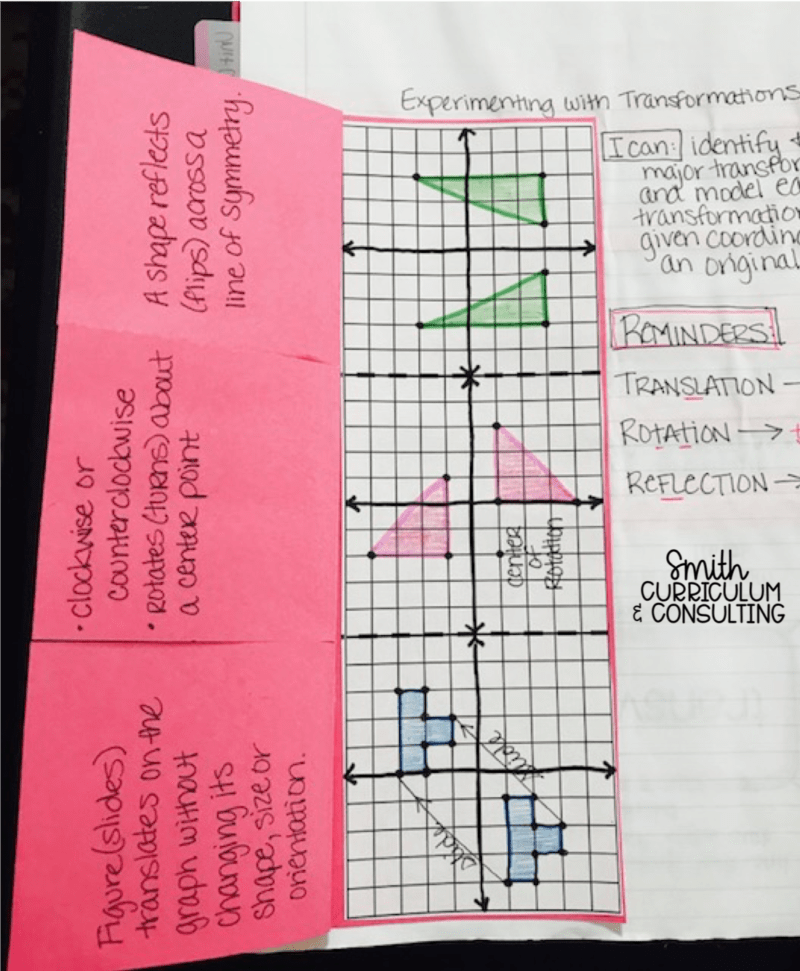 Experimenting with Transformations
I can: identify
major transfor
and model ea
transformatio
given coordin
an original
REMINDERS:
TRANSLATION –
ROTATION → t
REFLECTION →
Smith
CURRICULUM
& CONSULTING
A shape reflects
(flips) across a
line of symmetry.
• Clockwise or
counterclockwise
• Rotates (turns) about
a center point
Figure (slides)
translates on the
graph without
changing its
shape, size or
orientation.
center
of
Rotation
slide
slide